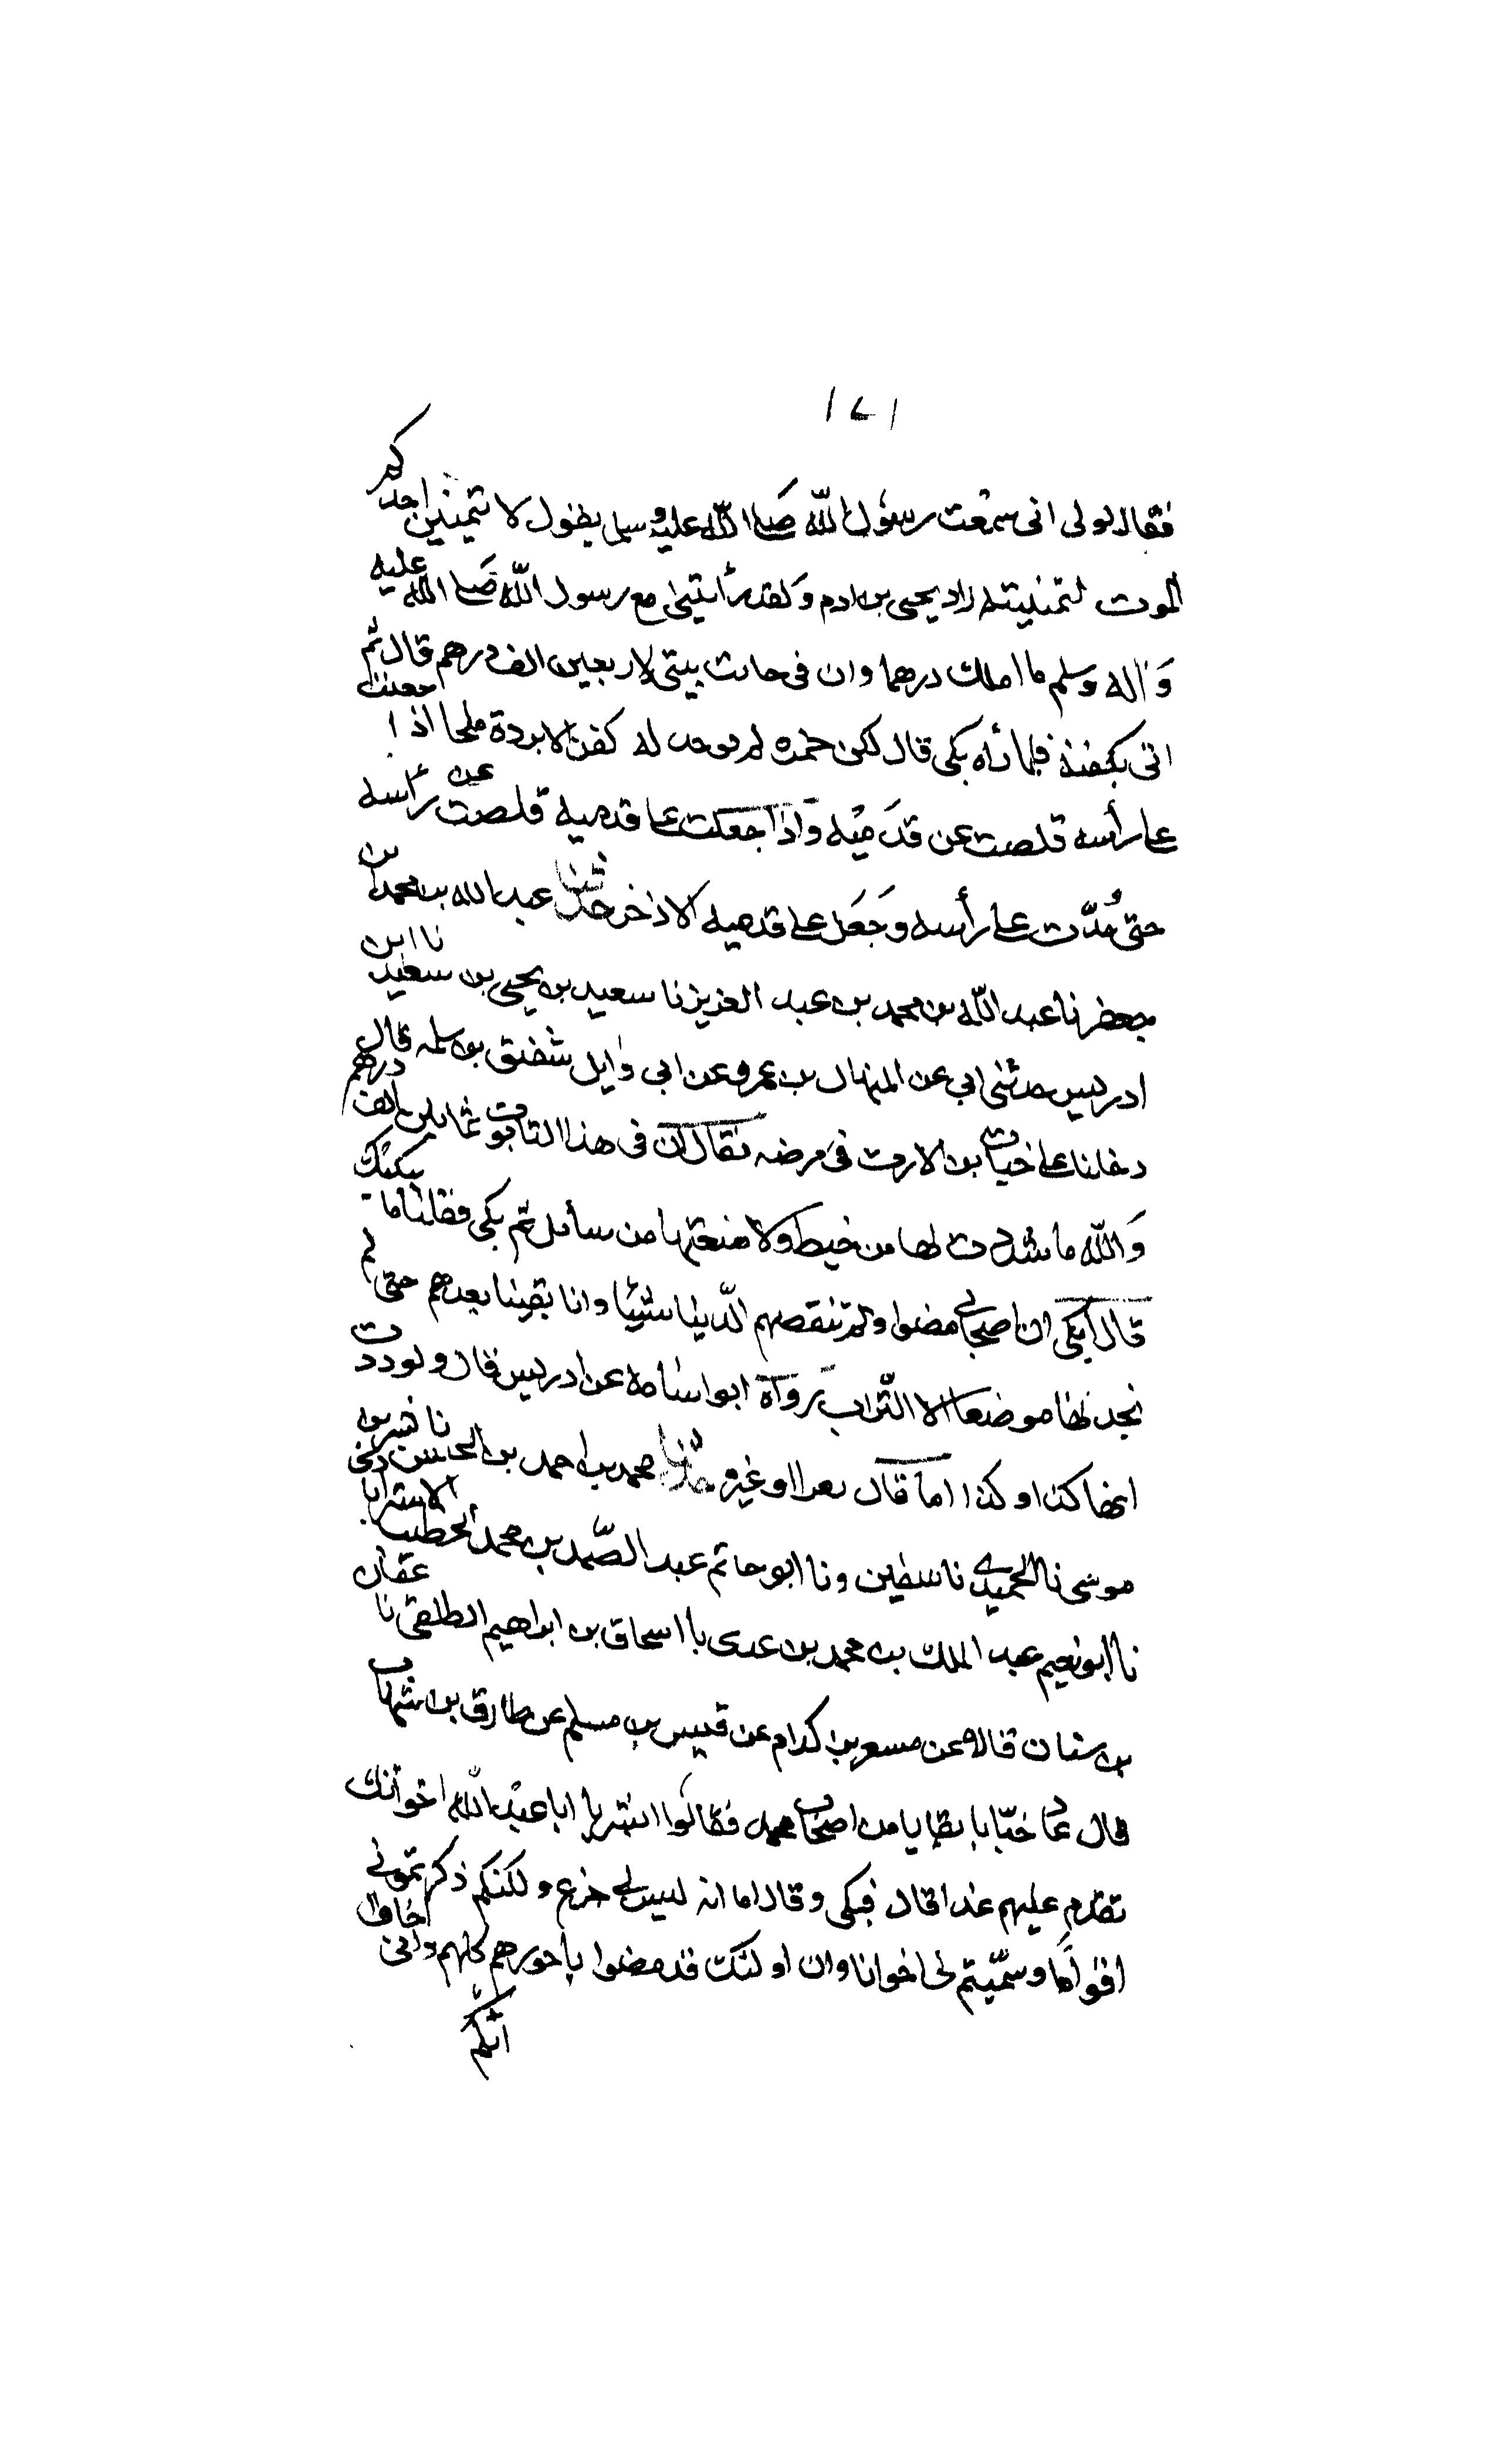 ١٧١
فقال لولا انى سمعت رسول الله صلى الله عليه وسلم يقول لا يتمنين احدكم
الموت لتمنيته زاد يحيى بن ادم ولقد رأيتنى مع رسول الله صلى الله عليه
وآله وسلم ما املك درهما وان فى جانب بيتى لاربعين الف درهم قال ثم
اتى بكفنه فلما رآه بكى قال لكن حمزه لم يوجد له كفن الا بردة ملحا اذا جعلت
على رأسه قلصت عن قدميه واذا جعلت على قدميه قلصت عن رأسه
حتى مدّت على رأسه وجعل على قدميه الاذخر حدثنا عبد الله بن محمد بن
جعفر نا عبد الله بن محمد بن عبد العزيز نا سعيد بن يحيى بن سعيد نا ابن
ادريس حدثنى ابي عن المنهال بن عمرو عن ابى وايل شقيق بن سلمه قال
دخلنا على خباب بن الارت فى مرضه فقال ان فى هذا التابوت ثمانين الف درهم
والله ما شددت لها من خيط ولا منعتها من سائل ثم بكى فقلنا ما يبكيك
قال ابكى ان اصحابى مضوا ولم تنقصهم الدينا شيئا وانا بقينا بعدهم حتى لم
نجد لها موضعا الا التراب رواه ابو اسامه عن ادريس قال ولوددت
انها كذا وكذا اما قال بعرا او غيره حدثنا محمد بن احمد بن الحسن نا بشر بن
موسى نا الحميدى نا سفين ونا ابو حاتم عبد الصمد بن محمد الخطيب الاستراباذى
نا ابو نعيم عبد الملك بن محمد بن عدى نا اسحاق بن ابراهيم الطلقى نا عفان
بن سنان قالا عن مسعر بن كدام عن قيس بن مسلم عن طارق بن شهاب
قال عاد خبّابا بقايا من اصحاب محمد فقالوا ابشر يا ابا عبد الله اخوانك
تقدم عليهم غدا قال فبكى وقال اما انه ليس بى جزع ولكنكم ذكرتمونى
اقواما وسمّيتم لى اخوانا وان اولئك قد مضوا باجورهم كلهم وانى اخاف